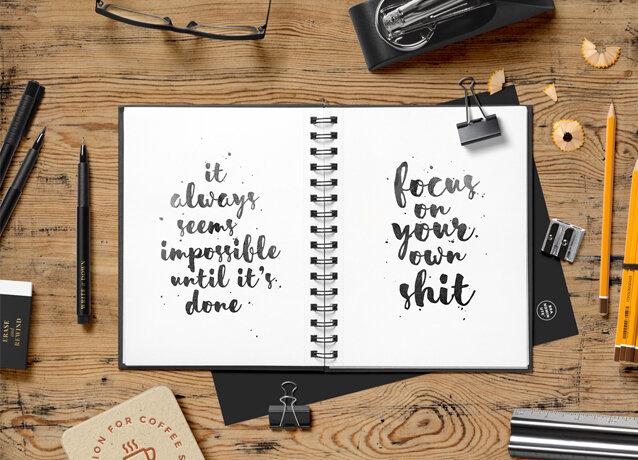 it
always
seems
impossible
until it's
done
focus
on
your
own
shit
WRITE IT DOWN
ERASE
and
REWIND
ION FOR COFFEE S